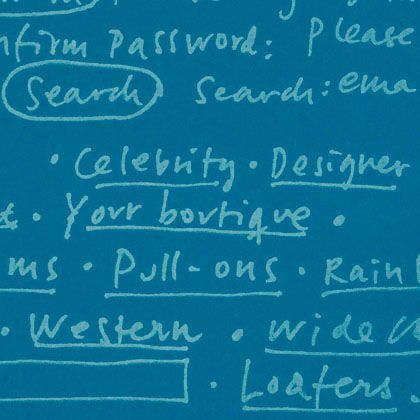 nfirm password: Please
Search Search: ema
• Celebrity • Designer
• Your bovtique •
ms • Pull-ons • Rain
• Western • Wide
• Loafers